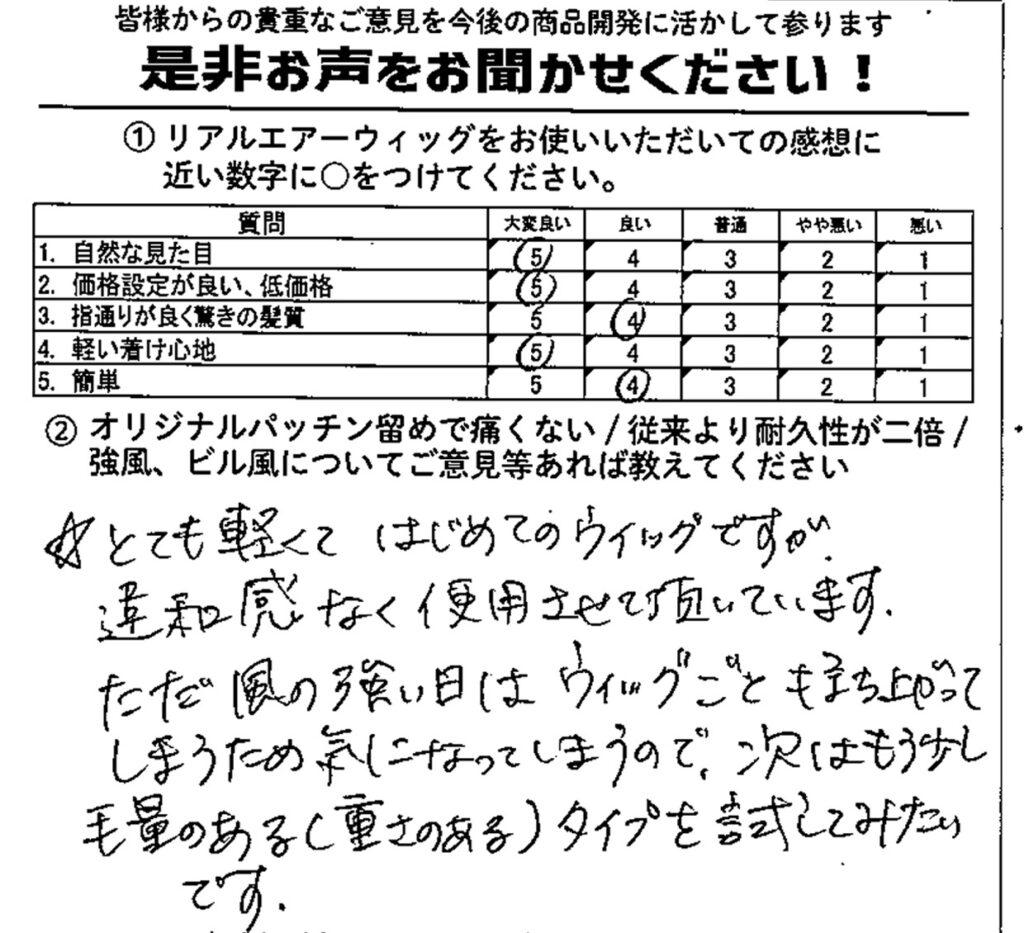 皆様からの貴重なご意見を今後の商品開発に活かして参ります
是非お声をお聞かせください！
① リアルエアーウィッグをお使いいただいての感想に
近い数字に○をつけてください。
質問 大変良い 良い 普通 やや悪い 悪い
1. 自然な見た目 5 4 3 2 1
2. 価格設定が良い、低価格 5 4 3 2 1
3. 指通りが良く驚きの髪質 5 4 3 2 1
4. 軽い着け心地 5 4 3 2 1
5. 簡単 5 4 3 2 1
② オリジナルパッチン留めで痛くない / 従来より耐久性が二倍 /
強風、ビル風についてご意見等あれば教えてください
☆とても軽くて はじめてのウィッグですが、
違和感なく使用させて頂いています.
ただ 風の強い日は ウィッグごと もち上がって
しまうため 気になってしまうので、次はもう少し
毛量のある(重さのある)タイプを試してみたい
です.